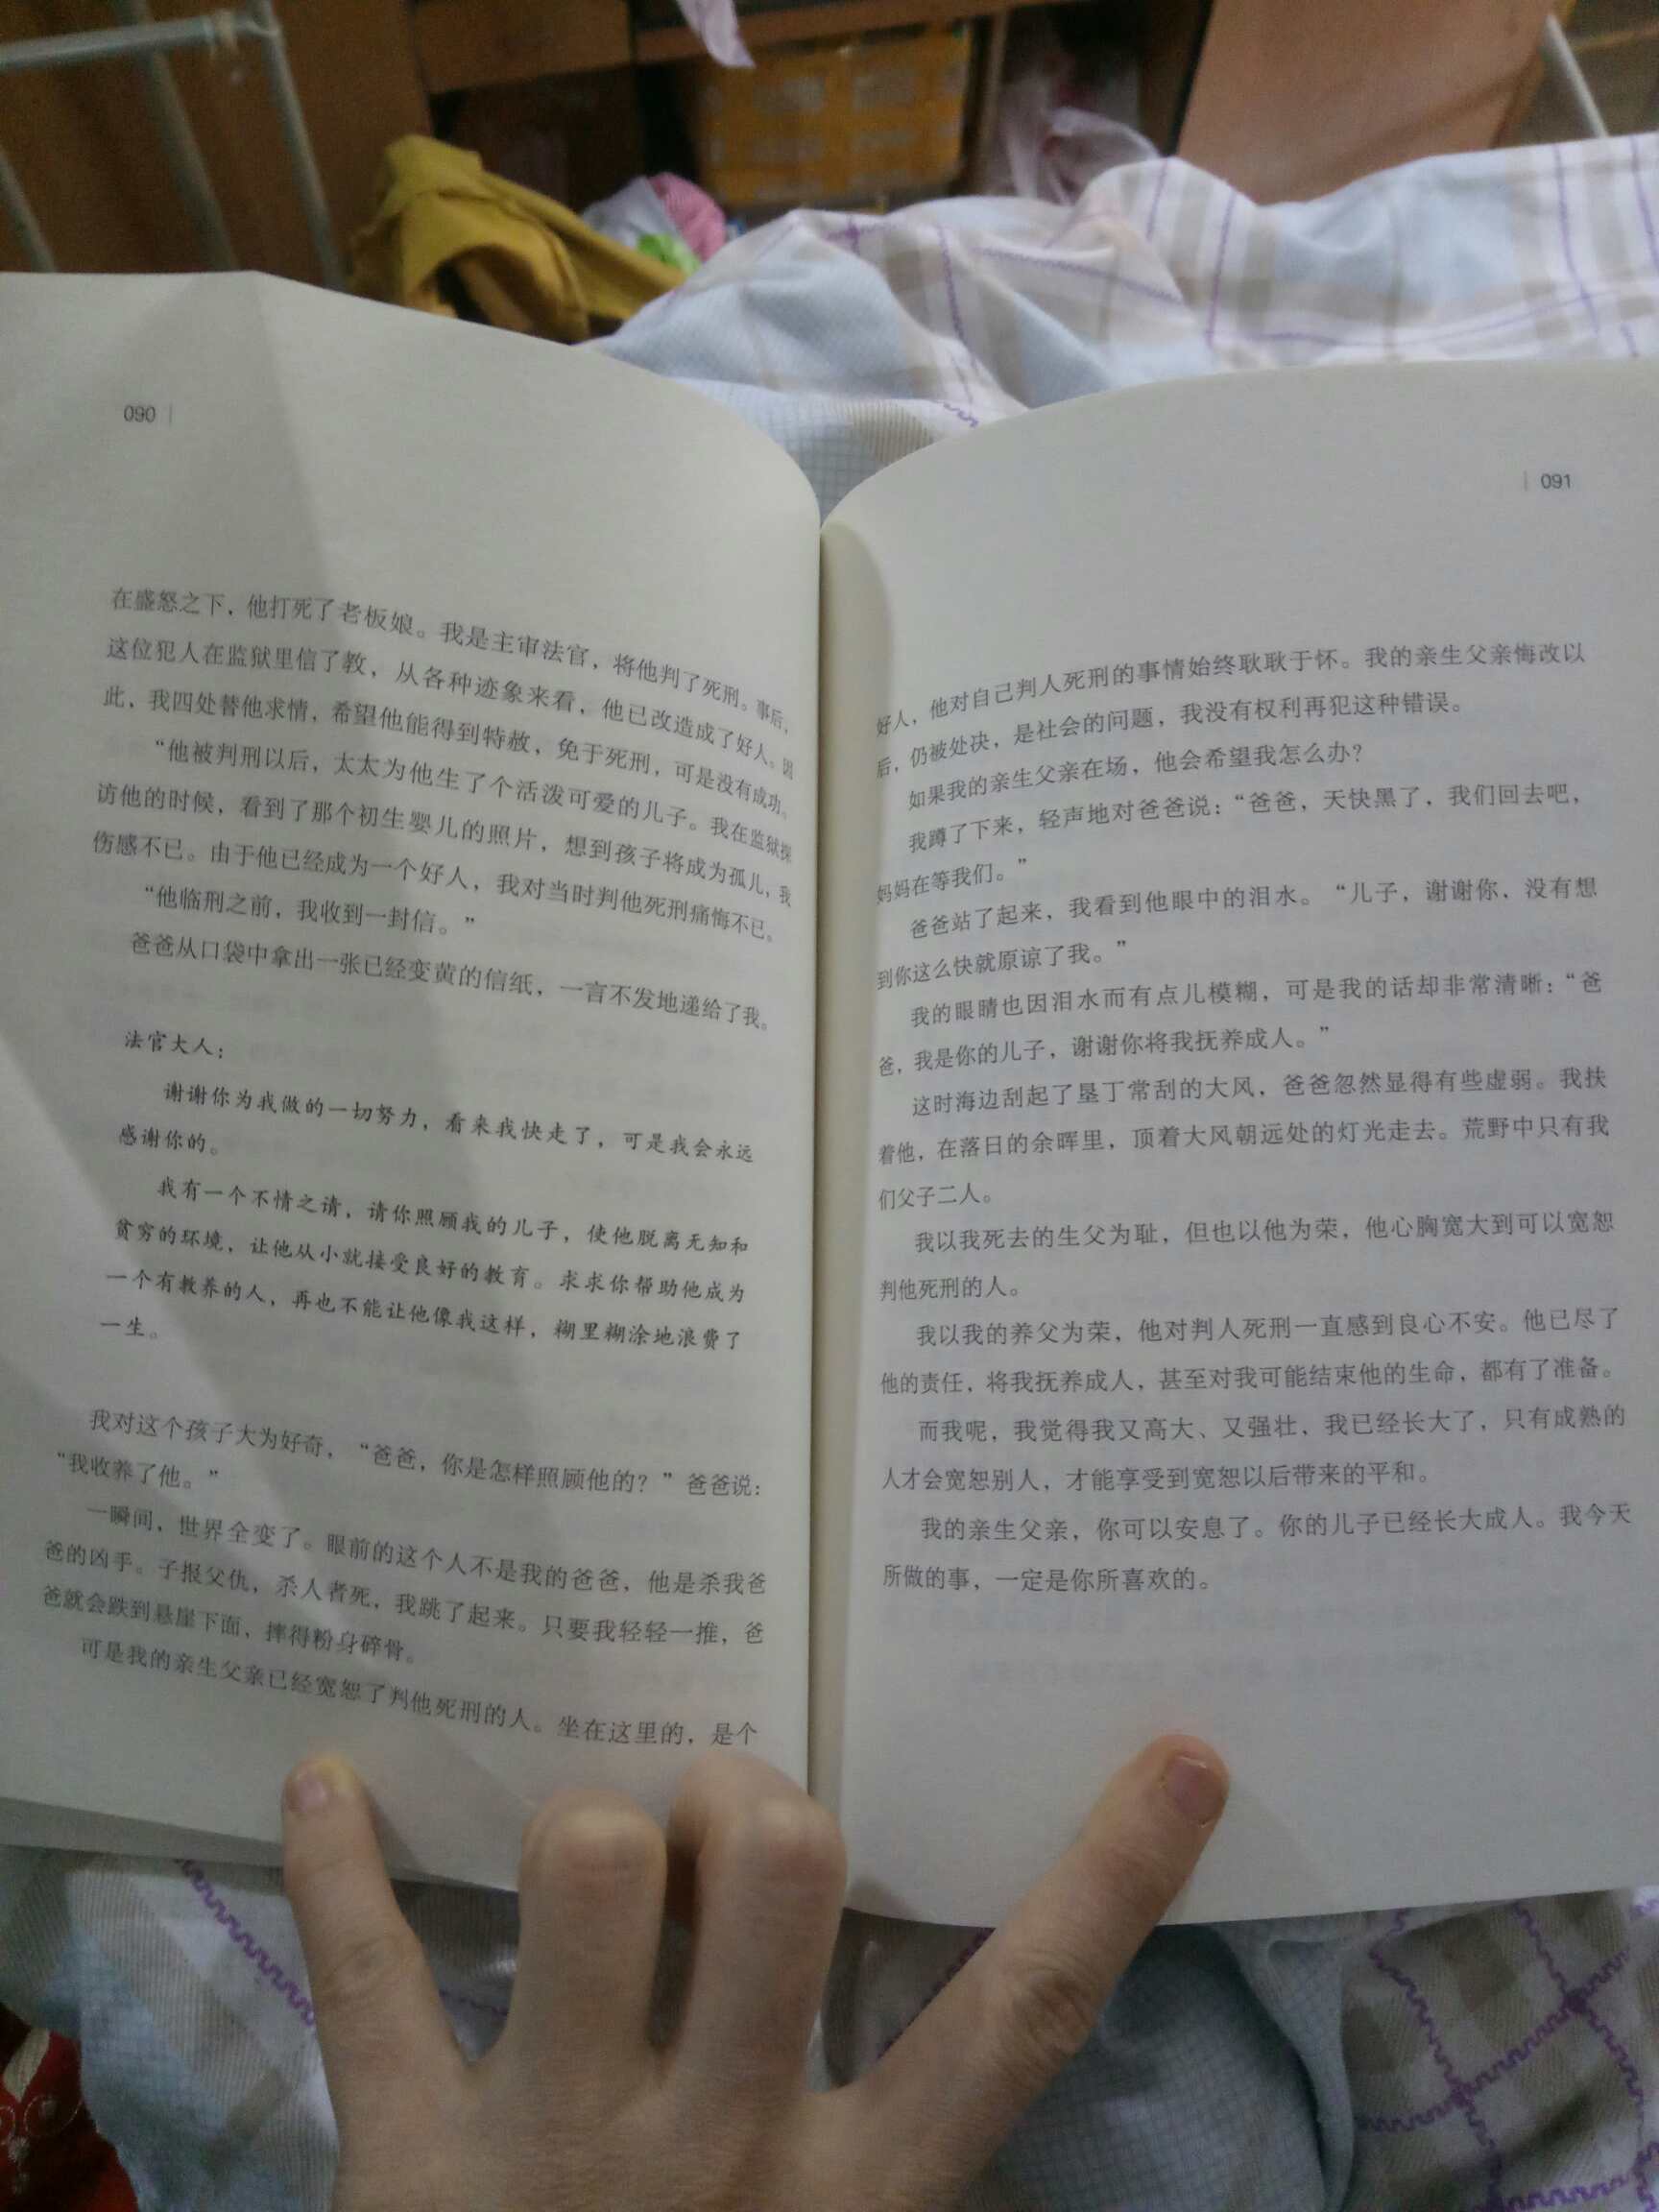 090
在盛怒之下，他打死了老板娘。我是主审法官，将他判了死刑。事后，
这位犯人在监狱里信了教，从各种迹象来看，他已改造成了好人。因
此，我四处替他求情，希望他能得到特赦，免于死刑，可是没有成功。
“他被判刑以后，太太为他生了个活泼可爱的儿子。我在监狱探
访他的时候，看到了那个初生婴儿的照片，想到孩子将成为孤儿，我
伤感不已。由于他已经成为一个好人，我对当时判他死刑痛悔不已。
“他临刑之前，我收到一封信。”
爸爸从口袋中拿出一张已经变黄的信纸，一言不发地递给了我。
法官大人：
谢谢你为我做的一切努力，看来我快走了，可是我会永远
感谢你的。
我有一个不情之请，请你照顾我的儿子，使他脱离无知和
贫穷的环境，让他从小就接受良好的教育。求求你帮助他成为
一个有教养的人，再也不能让他像我这样，糊里糊涂地浪费了
一生。
我对这个孩子大为好奇，“爸爸，你是怎样照顾他的？”爸爸说：
“我收养了他。”
一瞬间，世界全变了。眼前的这个人不是我的爸爸，他是杀我爸
爸的凶手。子报父仇，杀人者死，我跳了起来。只要我轻轻一推，爸
爸就会跌到悬崖下面，摔得粉身碎骨。
可是我的亲生父亲已经宽恕了判他死刑的人。坐在这里的，是个
091
好人，他对自己判人死刑的事情始终耿耿于怀。我的亲生父亲悔改以
后，仍被处决，是社会的问题，我没有权利再犯这种错误。
如果我的亲生父亲在场，他会希望我怎么办？
我蹲了下来，轻声地对爸爸说：“爸爸，天快黑了，我们回去吧，
妈妈在等我们。”
爸爸站了起来，我看到他眼中的泪水。“儿子，谢谢你，没有想
到你这么快就原谅了我。”
我的眼睛也因泪水而有点儿模糊，可是我的话却非常清晰：“爸
爸，我是你的儿子，谢谢你将我抚养成人。”
这时海边刮起了垦丁常刮的大风，爸爸忽然显得有些虚弱。我扶
着他，在落日的余晖里，顶着大风朝远处的灯光走去。荒野中只有我
们父子二人。
我以我死去的生父为耻，但也以他为荣，他心胸宽大到可以宽恕
判他死刑的人。
我以我的养父为荣，他对判人死刑一直感到良心不安。他已尽了
他的责任，将我抚养成人，甚至对我可能结束他的生命，都有了准备。
而我呢，我觉得我又高大、又强壮，我已经长大了，只有成熟的
人才会宽恕别人，才能享受到宽恕以后带来的平和。
我的亲生父亲，你可以安息了。你的儿子已经长大成人。我今天
所做的事，一定是你所喜欢的。